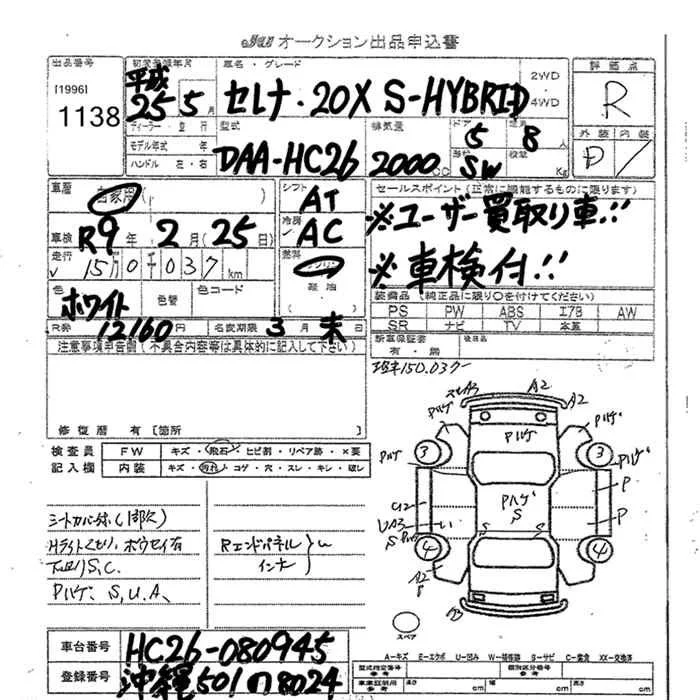 オークション出品申込書
出品番号 初度登録年月 車名・グレード 2WD 4WD 評価点
[1996] 1138 平成 25 5月 セレナ・20X S-HYBRID R
型式 排気量 ドア 定員 外装 内装
モデル年式 年
ハンドル 左・右
DAA-HC26 2000cc 5 8人 形状 SW 積載 Kg D
車歴 自家用 シフト AT セールスポイント(正常に機能するものに限ります)
冷房 AC ※ユーザー買取り車!!
車検 R9年2月(25日) ※車検付!!
走行 15万0千037km 燃料 ガソリン 軽油
色 ホワイト 色替 色コード
装備品(純正品に限り〇を付けてください)
PS PW ABS エアB AW
SR ナビ TV 本革
R券 12160円 名変期限 3月末
新車保証書 有・無 後日品
注意事項申告欄(不具合内容等は具体的に記入して下さい)
150.037
修復歴 有[箇所
検査員 FW キズ・飛石・ヒビ割・リペア跡・×要
記入欄 内装 キズ・汚れ・コゲ・穴・スレ・キレ・破レ
A2 A2
Pハゲ Pハゲ Pハゲ
3 3
Pハゲ Pハゲ P
Pハゲ S
S S
4 4
A2
スペア
Hライトくもり、ホウセイ有
下廻りS.C.
Pハゲ、S,U,A、
Rエンドパネル
インナー
車台番号 HC26-080945
登録番号 沖縄501の8024
A-キズ E-エクボ U-凹み W-補修跡 S-サビ C-腐食 XX-交換済
型式指定番号 類別区分番号
車庫証明用参考 長さ cm 幅 cm 高さ cm